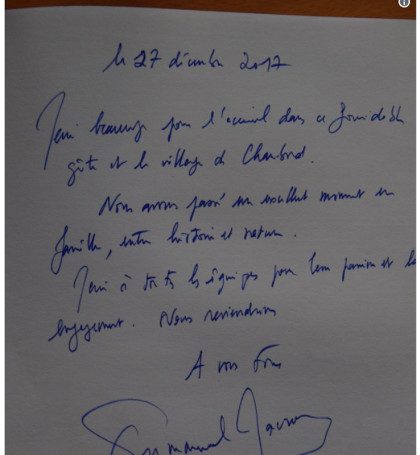 le 27 décembre 2017
Merci beaucoup pour l'accueil dans ce formidable
gîte et le village de Chambord.
Nous avons passé un excellent moment en
famille, entre histoire et nature.
Merci à toutes les équipes pour leur passion et leur
engagement. Nous reviendrons
A vous tous
Emmanuel Macron